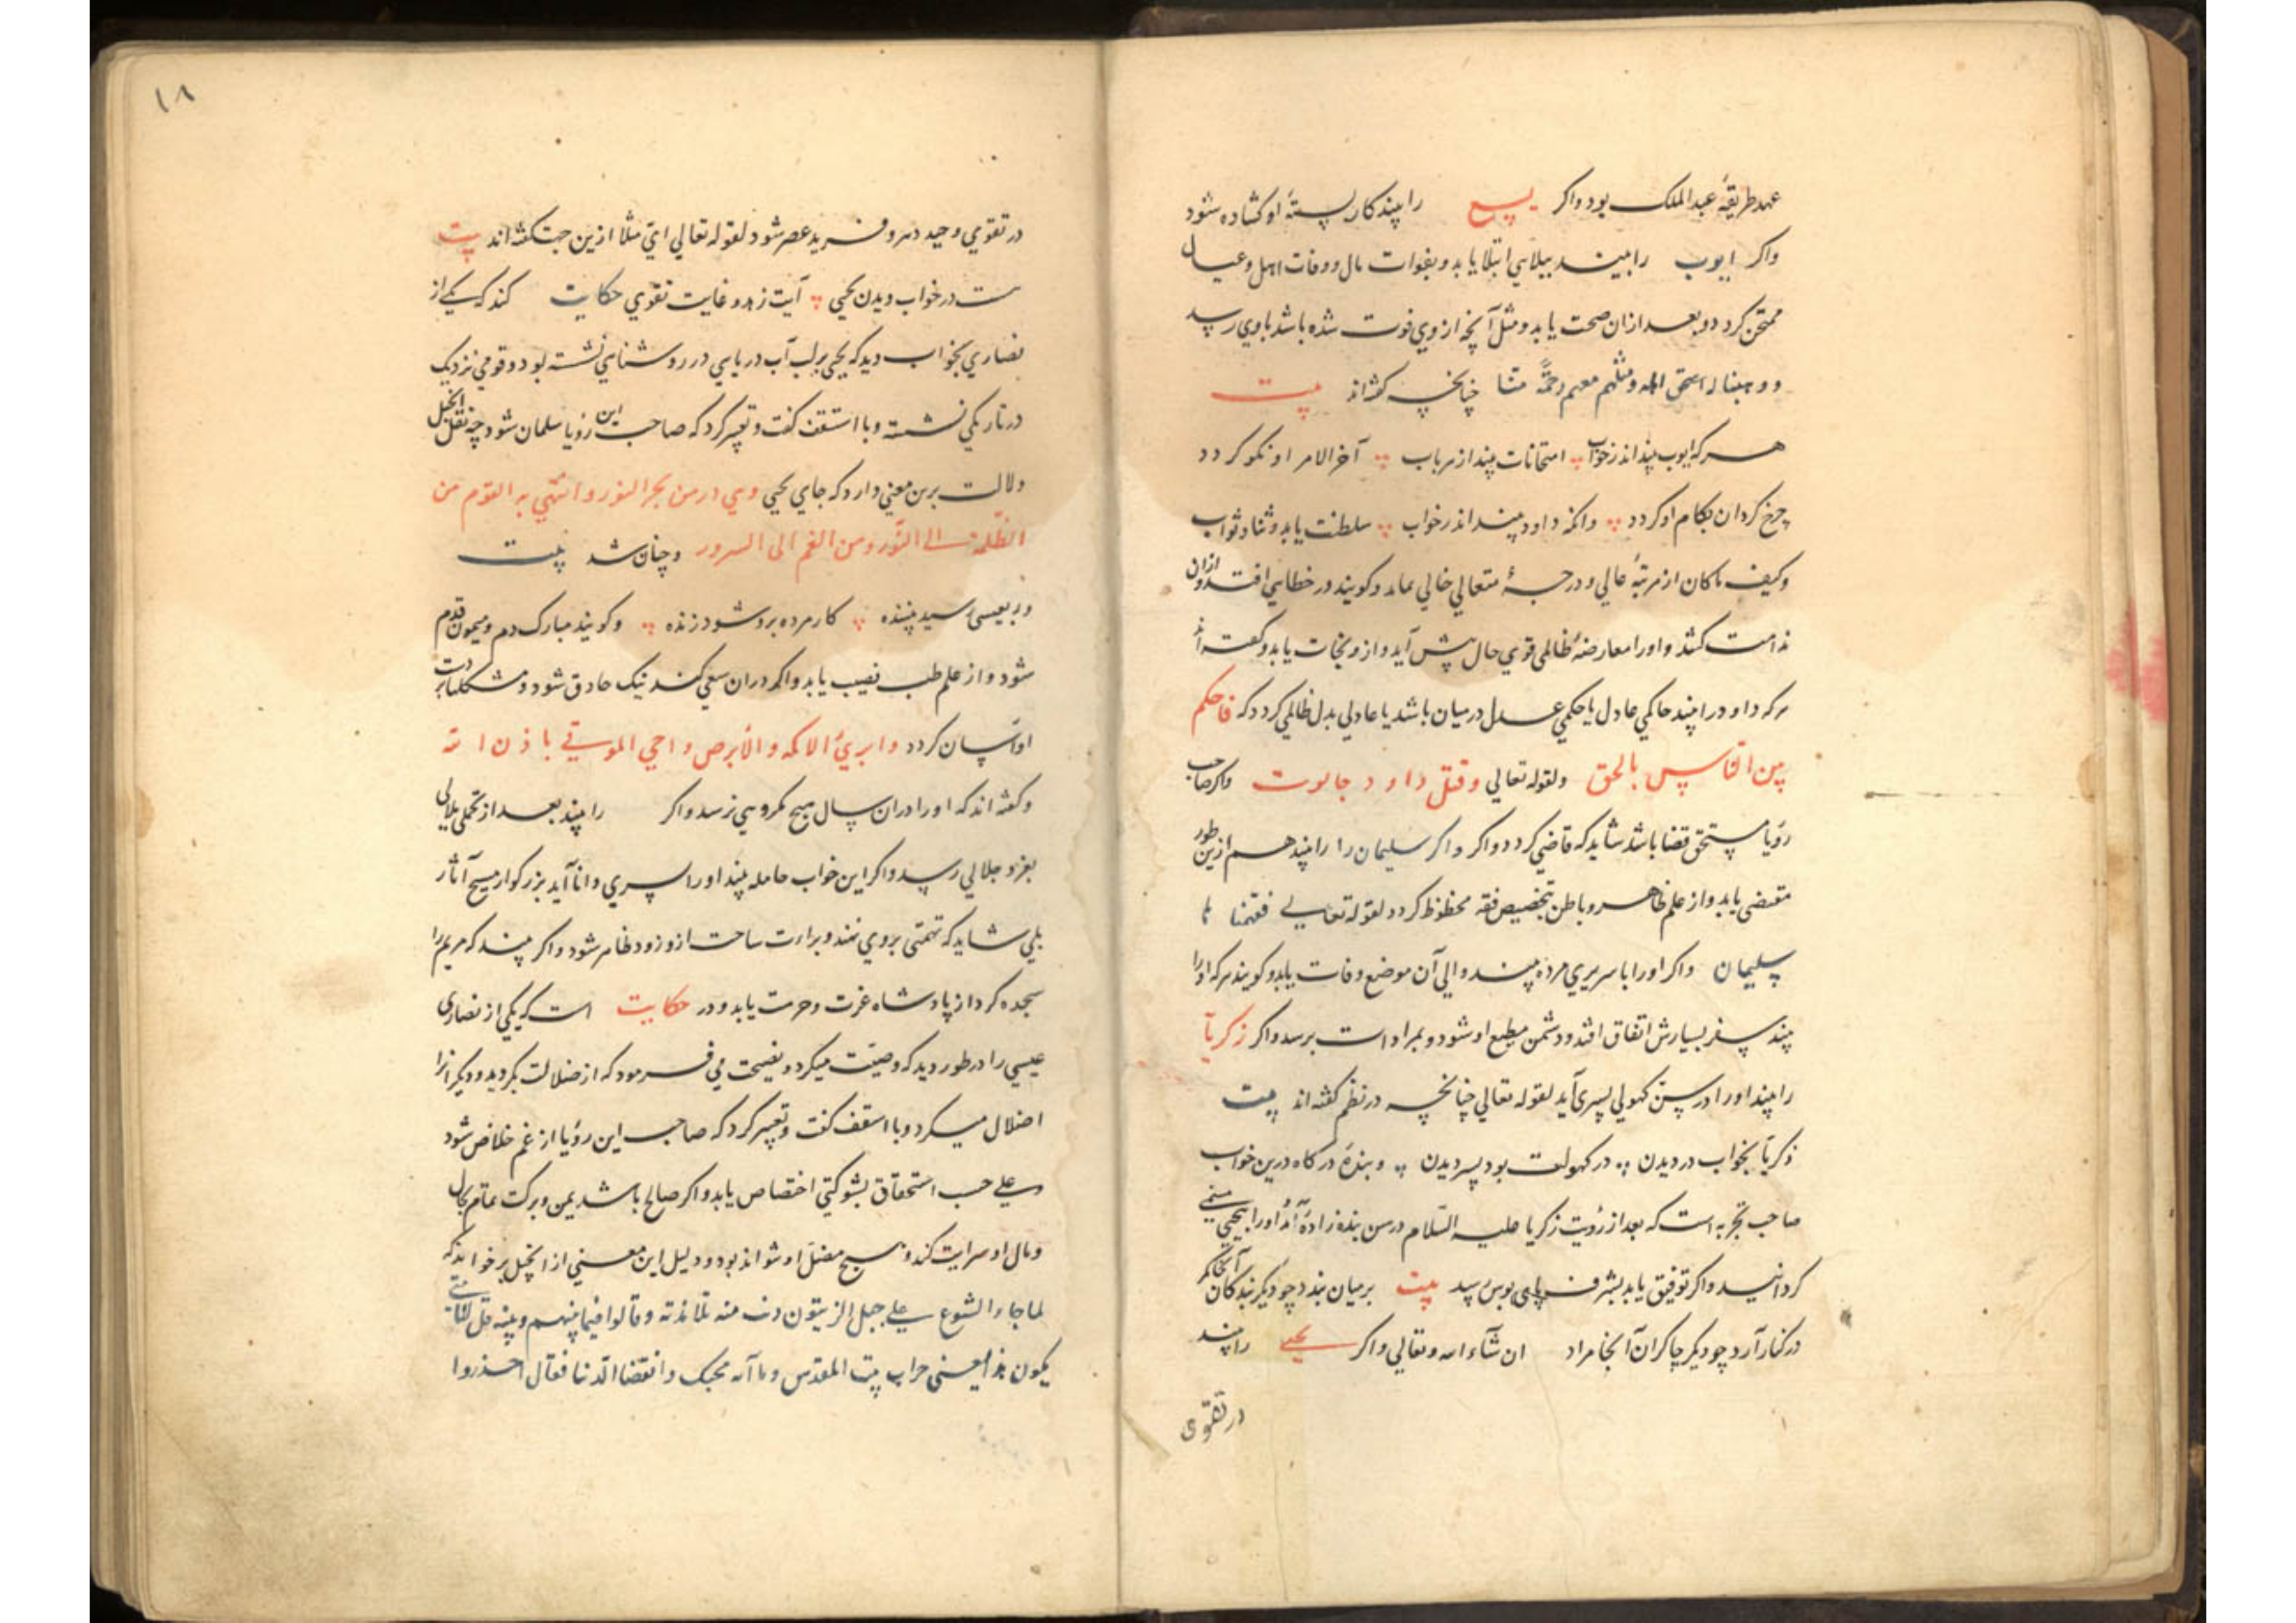 عهد طریقهٔ عبد الملک بود واکر یسع را بیند کار بستهٔ او کشاده شود
واکر ایوب را بیند ببلایی ابتلا یابد و بفوات مال و وفات اهل و عیال
ممتحن کردد و بعد از ان صحت یابد و مثل آنچه از وی فوت شده باشد باوی رسد
و وهبنا له اهله ومثلهم معهم رحمة منا چنانچه کفته‌اند بیت
هر که ایوب بیند اندر خواب امتحانات بیند از هر باب آخر الامر او نکو کردد
چرخ کردان بکام او کردد وانکه داود بیند اندر خواب سلطنت یابد و ثنا و ثواب
وکیف ماکان از مرتبهٔ عالی و درجهٔ متعالی خالی نماند و کویند در خطایی افتد و ازان
ندامت کشد و او را معارضهٔ ظالمی قوی حال پیش آید و ازو نجات یابد و کفته‌اند
هر که داود را بیند حاکمی عادل یا حکمی عدل در میان باشد یا عادلی بدل ظالمی کردد که فاحکم
بین الناس بالحق ولقوله تعالی وقتل داود جالوت واکر صاحب
رؤیا مستحق قضا باشد شاید که قاضی کردد واکر واکر سلیمان را را بیند هم ازین طور
مقتضی یابد و از علم ظاهر و باطن بتخصیص فقه محظوظ کردد لقوله تعالی ففهمنا ها
سلیمان واکر او را با سریری مرده بیند والی آن موضع وفات یابد و کویند هر که او را
بیند سفر بسیارش اتفاق افتد و دشمن مطیع او شود و بمراد است برسد واکر زکریا
را بیند او را در سن کهولی پسری آید لقوله تعالی چنانچه در نظم کفته اند بیت
زکریا بخواب در دیدن در کهولت بود پسر دیدن و بندهٔ درکاه درین خواب
صاحب تجربه است که بعد از رؤیت زکریا علیه السلام در سن بنده زادهٔ آمد او را بیحیی مسمی
کردانید واکر توفیق یابد بشرف پای بوس رسد بیت بر میان بندد چو دیکر بندکان آنجا کمر
در کنار آرد چو دیکر چاکران آنجا مراد ان شآء الله وتعالی واکر یحیی را بیند
در تقوی
۱۸
در تقوی وحید دهر و فرید عصر شود لقوله تعالی ازین جهت کفته اند بیت
هست در خواب دیدن یحیی آیت زهد و غایت تقوی حکایت کنند که یکی از
نصاری بخواب دید که یحیی بر لب آب دریایی در روشنایی نشسته بود و قومی نزدیک
در تاریکی نشسته و با اسقف کفت و تعبیر کرد که صاحب این رؤیا مسلمان شود چه نقل انجیل
دلالت برین معنی دارد که جای یحیی من بحر النور و انتهی به القوم من
الظلمة الی النور ومن الغم الی السرور و چنان شد بیت
ور بعیسی رسید بیننده کار مرده برو شود زنده و کویند مبارک دم و میمون قدم
شود و از علم طب نصیب یابد واکر دران سعی کند نیک حاذق شود و مشکلها بر دست
او آسان کردد وابرئ الاکمه والابرص واحی الموتی باذن الله
وکفته اند که او را دران سال هیچ مکروهی نرسد واکر را بیند بعد از تحمل بلایی
بعز و جلالی رسد واکر این خواب حامله بیند او را پسری دانا آید بزرکوار مسیح آثار
بلی شاید که تهمتی بر وی نهند و براءت ساحت ازو زود ظاهر شود واکر بیند که مریم را
سجده کرد از پادشاه عزت و حرمت یابد و در حکایت است که یکی از نصاری
عیسی را در طور دید که وصیت میکرد و نصیحت می فرمود که از ضلالت بکردید و دیکر انرا
اضلال میکرد و با اسقف کفت و تعبیر کرد که صاحب این رؤیا از غم خلاص شود
و علی حسب استحقاق بشوکتی اختصاص یابد واکر صالح باشد یمن و برکت تمام بحال
و مال او سرایت کند و هیچ مضل او نتواند بود و دلیل این معنی از انجیل بر خواند که
لما جاء الشوع علی جبل الزیتون دنت منه تلامذته وقالوا فیما بینهم وبینه قل لنا متی
یکون هذا یعنی خراب بیت المقدس و انقضا الدنیا فقال احذروا